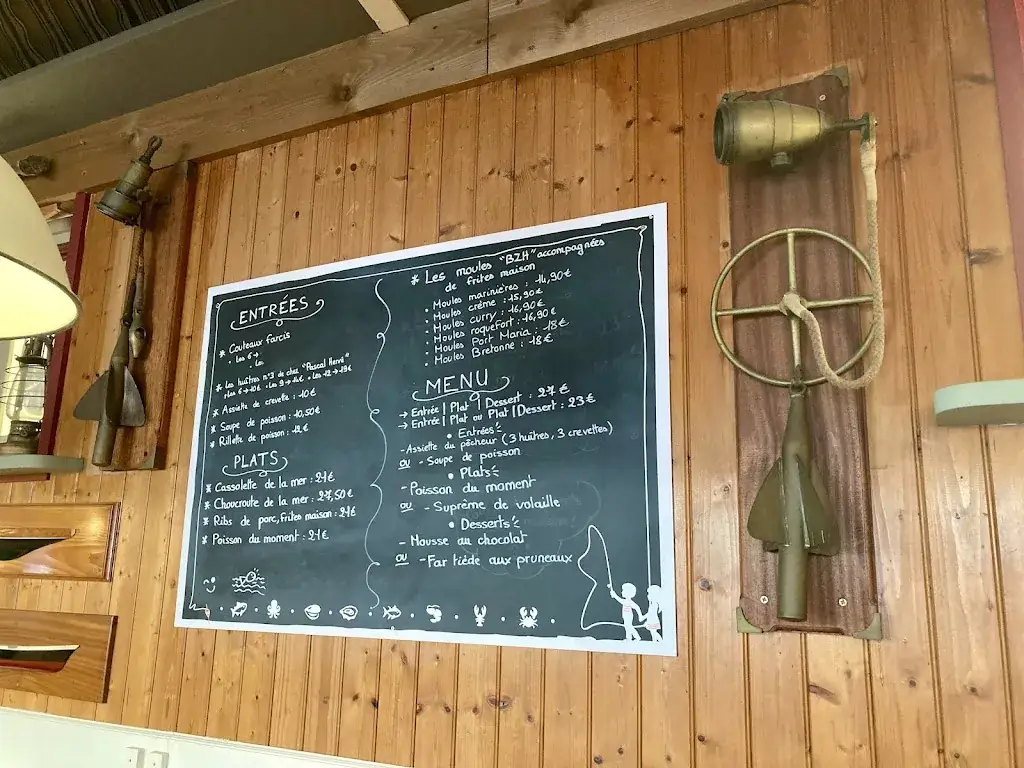 ENTRÉES
* Couteaux farcis
• Les 6 →
• Les
* Les huîtres n°3 de chez "Pascal Hervé"
• Les 6 → 10€ • Les 9 → 14€ • Les 12 → 19€
* Assiette de crevette : 10€
* Soupe de poisson : 10,50€
* Rillette de poisson : 12€
PLATS
* Cassolette de la mer : 24€
* Choucroute de la mer : 27,50€
* Ribs de porc, Frites maison : 24€
* Poisson du moment : 21€
* Les moules "BZH" accompagnées
de frites maison
• Moules marinières : 14,90€
• Moules crème : 15,90€
• Moules curry : 16,90€
• Moules roquefort : 16,90€
• Moules Port Maria : 18€
• Moules Bretonne : 18€
MENU
→ Entrée | Plat | Dessert : 27€
→ Entrée | Plat ou Plat | Dessert : 23€
• Entrées
- Assiette du pêcheur (3 huîtres, 3 crevettes)
ou - Soupe de poisson
• Plats
- Poisson du moment
ou - Suprême de volaille
• Desserts
- Mousse au chocolat
ou - Far tiède aux pruneaux